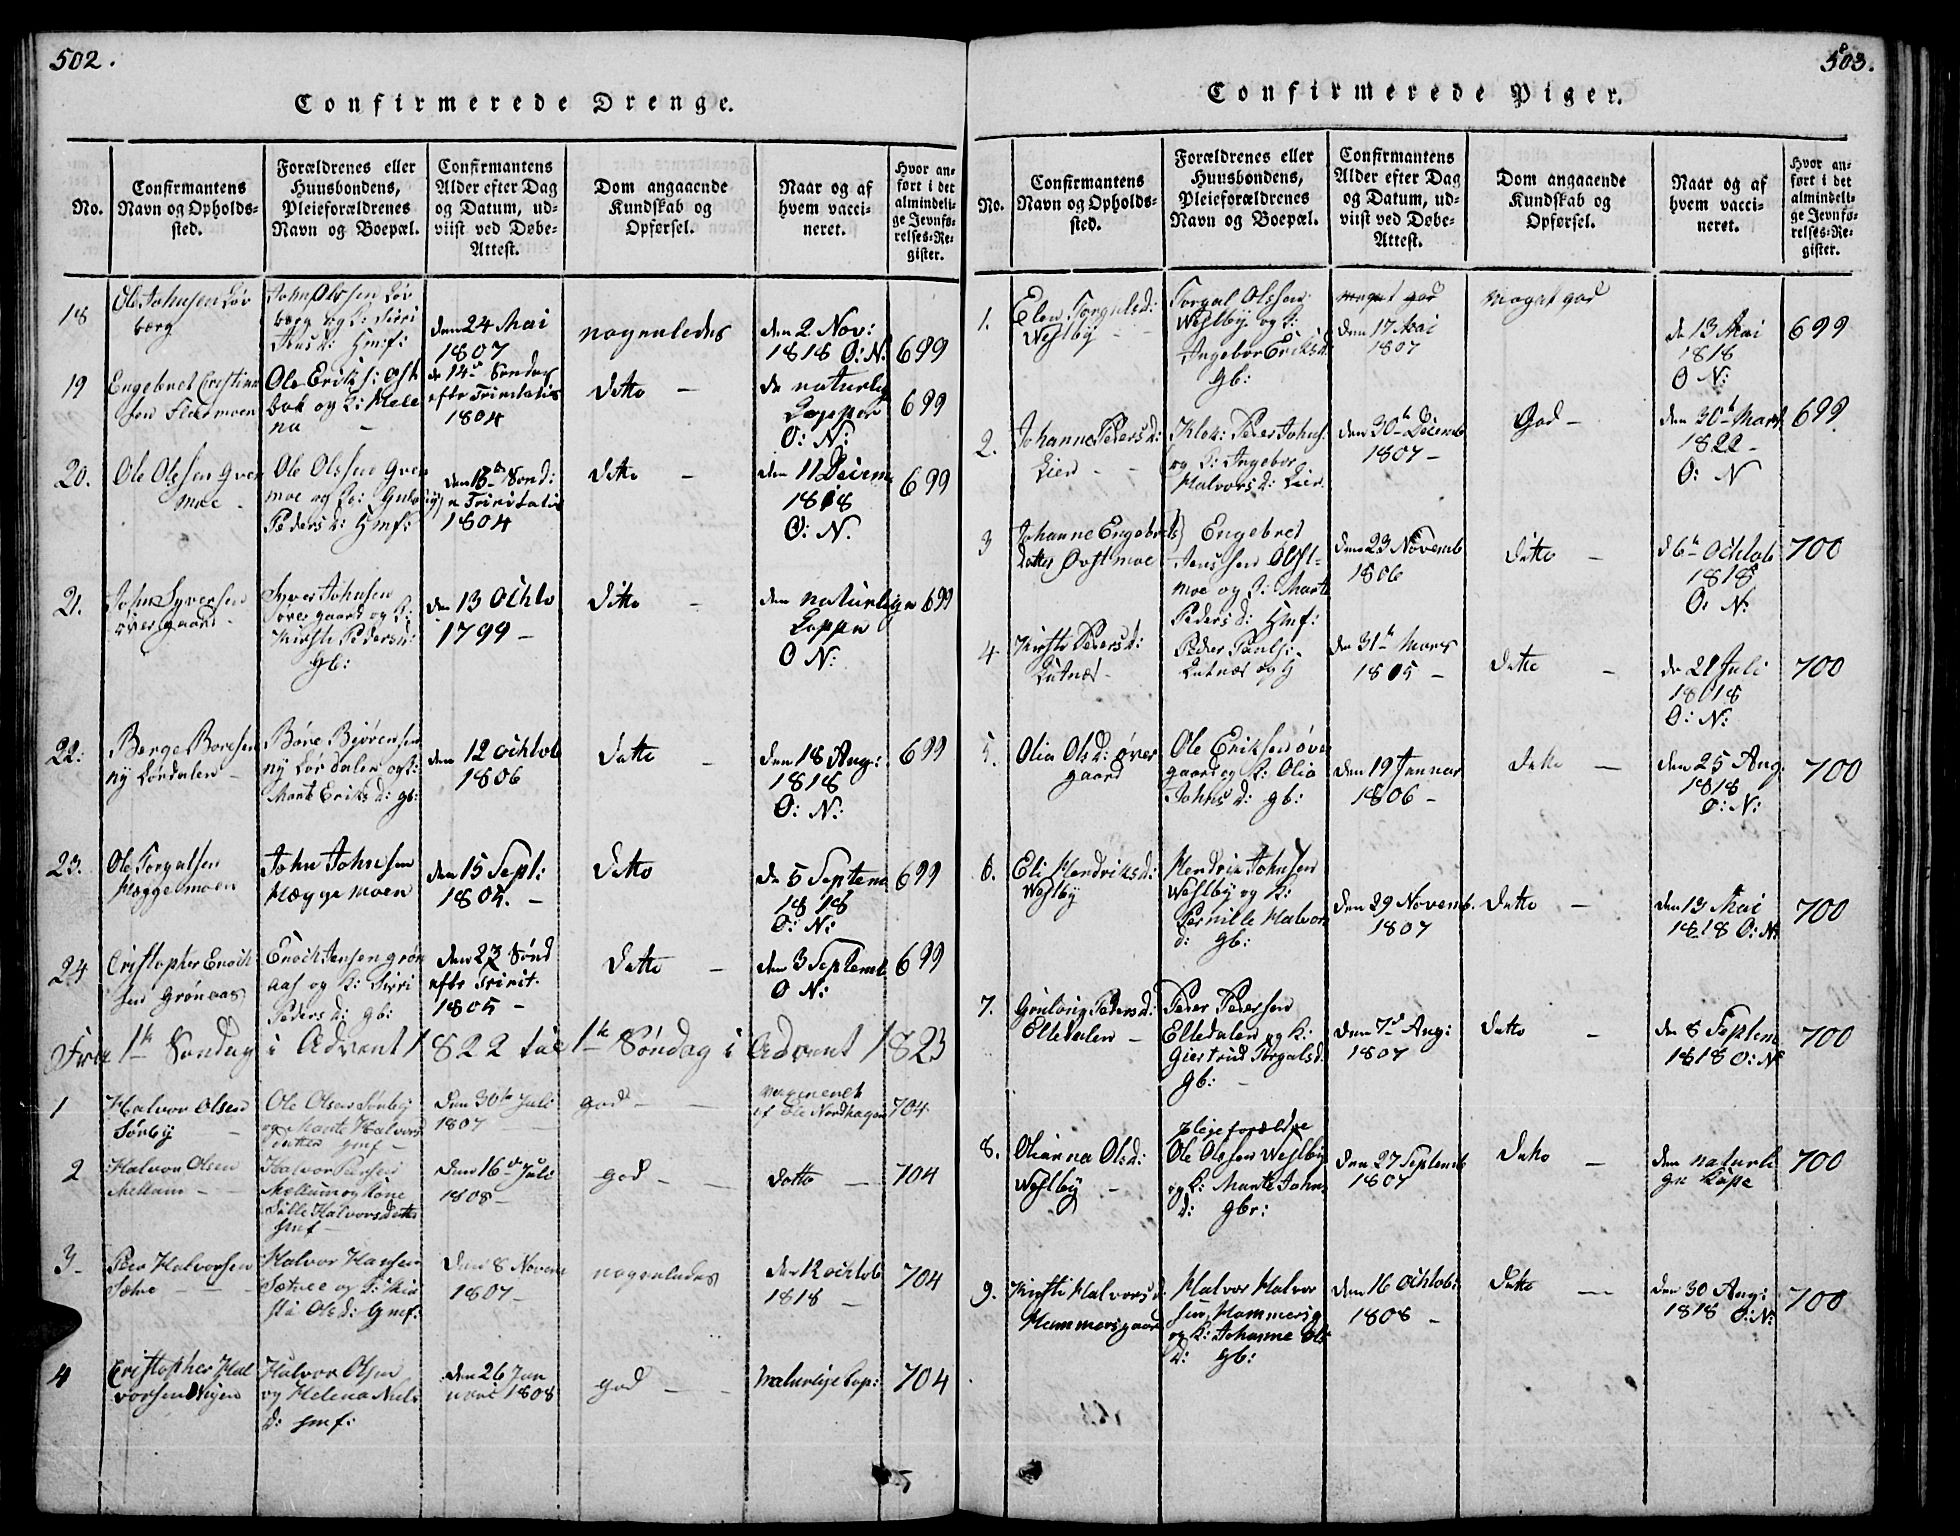 502.
Confirmerede Drenge.
No.
Confirmantens
Navn og Opholds-
sted.
Forældrenes eller
Huusbondens,
Pleieforældrenes
Navn og Boepæl.
Confirmantens
Alder efter Dag
og Datum, ud-
viist ved Døbe-
Attest.
Dom angaaende
Kundskab og
Opførsel.
Naar og af
hvem vacci-
neret.
Hvor an-
ført i det
almindeli-
ge Jevnfø-
relses-Re-
gister.
18
Ole Johnsen Lør
berg
John Olssen Lør
berg og K: Sirri
Jensd: Hmf:
den 24 Mai
1807
nogenledes
den 2 Nov:
1818 O: N:
699
19
Engebret Cristian
sen Flermoen
Ole Eriks: Ost
bak og K: Male
na
de 14de Søndag
efter Trinitatis
1804
ditto
de naturlig
Kopper
O: N:
699
20.
Ole Olssen Qver
moe
Ole Olssen Qver
moe og K: Gulov
Pedersd: Hmf:
den 13de Sønd:
e Trinitatis
1804
ditto
den 11 Decem
1818
O: N.
699
21.
John Syversen
øvergaard
Syver Johnsen
øvergaard og K:
Kirsti Pedersd:
Gb:
den 13 Octo
1799
ditto
den naturlige
Koppe
O N:
699
22.
Berge Boresen
ny Lørdalen
Børe Bjørensen
ny Lørdalen og K:
Marte Eriksd: gb:
den 12 Octob
1806
ditto
den 18 Aug:
1818
O: N:
699
23.
Ole Torgalsen
Hæggemoen
John Johnsen
Hæggemoen
den 15 Sept:
1805.
ditto
de 5 Septem
1818
O: N:
699
24
Cristopher Enoch
sen Grønaas
Enoch Jensen grøn
aas og K: Sirri
Pedersd: gb:
den 23 Sønd
efter Trinit.
1805
ditto
den 3 Septemb
O N:
699
Fra 1te Søndag i Advent 1822 til 1te Søndag i Advent 1823
1
Halvor Olsen
Sørby
Ole Olsen Sørby
og Marte Halvors
datter Hmf
Den 30te Juli
1807
god
vaccineret
af Ole Nordhagen
704
2
Halvor Olsen
Mellum
Halvor
Mellum og Kone
Halvorsdatter
Hmf
den 16de Juli
1808
god
ditto
704
3
Peer Halvorsen
Sætre
Halvor Hansen
Sætre og K: Kir
sti Olsd: Gmf:
den 8 Novem
1807
nogenledes
den 12 Octob
1818
704
4
Cristopher Hal
vorsen Nigen
Halvor Olsen
og Helena Niels
d: Hmf:
den 26 Jan
uari 1808
god
naturlige Kop:
704
503.
Confirmerede Piger.
No.
Confirmantens
Navn og Opholds-
sted.
Forældrenes eller
Huusbondens,
Pleieforældrenes
Navn og Boepæl.
Confirmantens
Alder efter Dag
og Datum, ud-
viist ved Døbe-
Attest.
Dom angaaende
Kundskab og
Opførsel.
Naar og af
hvem vacci-
neret.
Hvor an-
ført i det
almindeli-
ge Jevnfø-
relses-Re-
gister.
1.
Elen Torgalsd:
Westby
Torgal Olssen
Westby og K:
Ingebor Eriksd:
Gb:
meget god
den 17 Mai
1807
meget god
de 13 Mai
1818
O N:
699
2.
Johanne Pedersd:
Lien
Klok: Peder Johns:
og K: Ingebor
Halvorsd: Lien
den 30te Decemb
1807
God
den 30te Mart
1822
O: N
699
3
Johanne Engebrets
datter Øvstmoe
Engebret
Jenssen Øvst-
moe og K: Marte
Pedersd: Hmf:
den 23 Novemb
1806
ditto
d 6te Octob
1818
O: N:
700
4
Kirsti Pedersd:
Lutnæs
Peder Pouls:
Lutnæs og
den 31te Mars
1805
ditto
de 21 Juli
1818
O: N:
700
5.
Olia Olsd: øver
gaard
Ole Eriksen øver
gaard og K: Olia
Johnsd: gb:
den 19 Januar
1806
ditto
den 25 Aug
1818
O: N:
700
6.
Eli Hendriksd:
Westby
Hendrik Johnsen
Westby og K:
Pernille Halvors
d: gb:
den 29 Novemb.
1807
ditto
den 13 Mai
1818 O: N:
700
7.
Gruloug Pedersd:
Elledalen
Peder Pedersen
Elledalen og K:
Giertrud Torgalsd.
gb:
den 7de Aug:
1807
ditto
de 8 Septem
1818 O: N:
700
8.
Olianna Olsd:
Westby
Plejeforældre
Ole Olssen Westby
og K: Marte Johns
d: gbr:
den 27 Septemb
1807
ditto
den naturli
ge Kope
700
9.
Kirsti Halvorsd.
Hammersgaard
Halvor Halvor
sen Hammersg
og K: Johanne Ols
d: gb:
den 16 Octob:
1808
ditto
den 30 Aug:
1818 O: N:
700